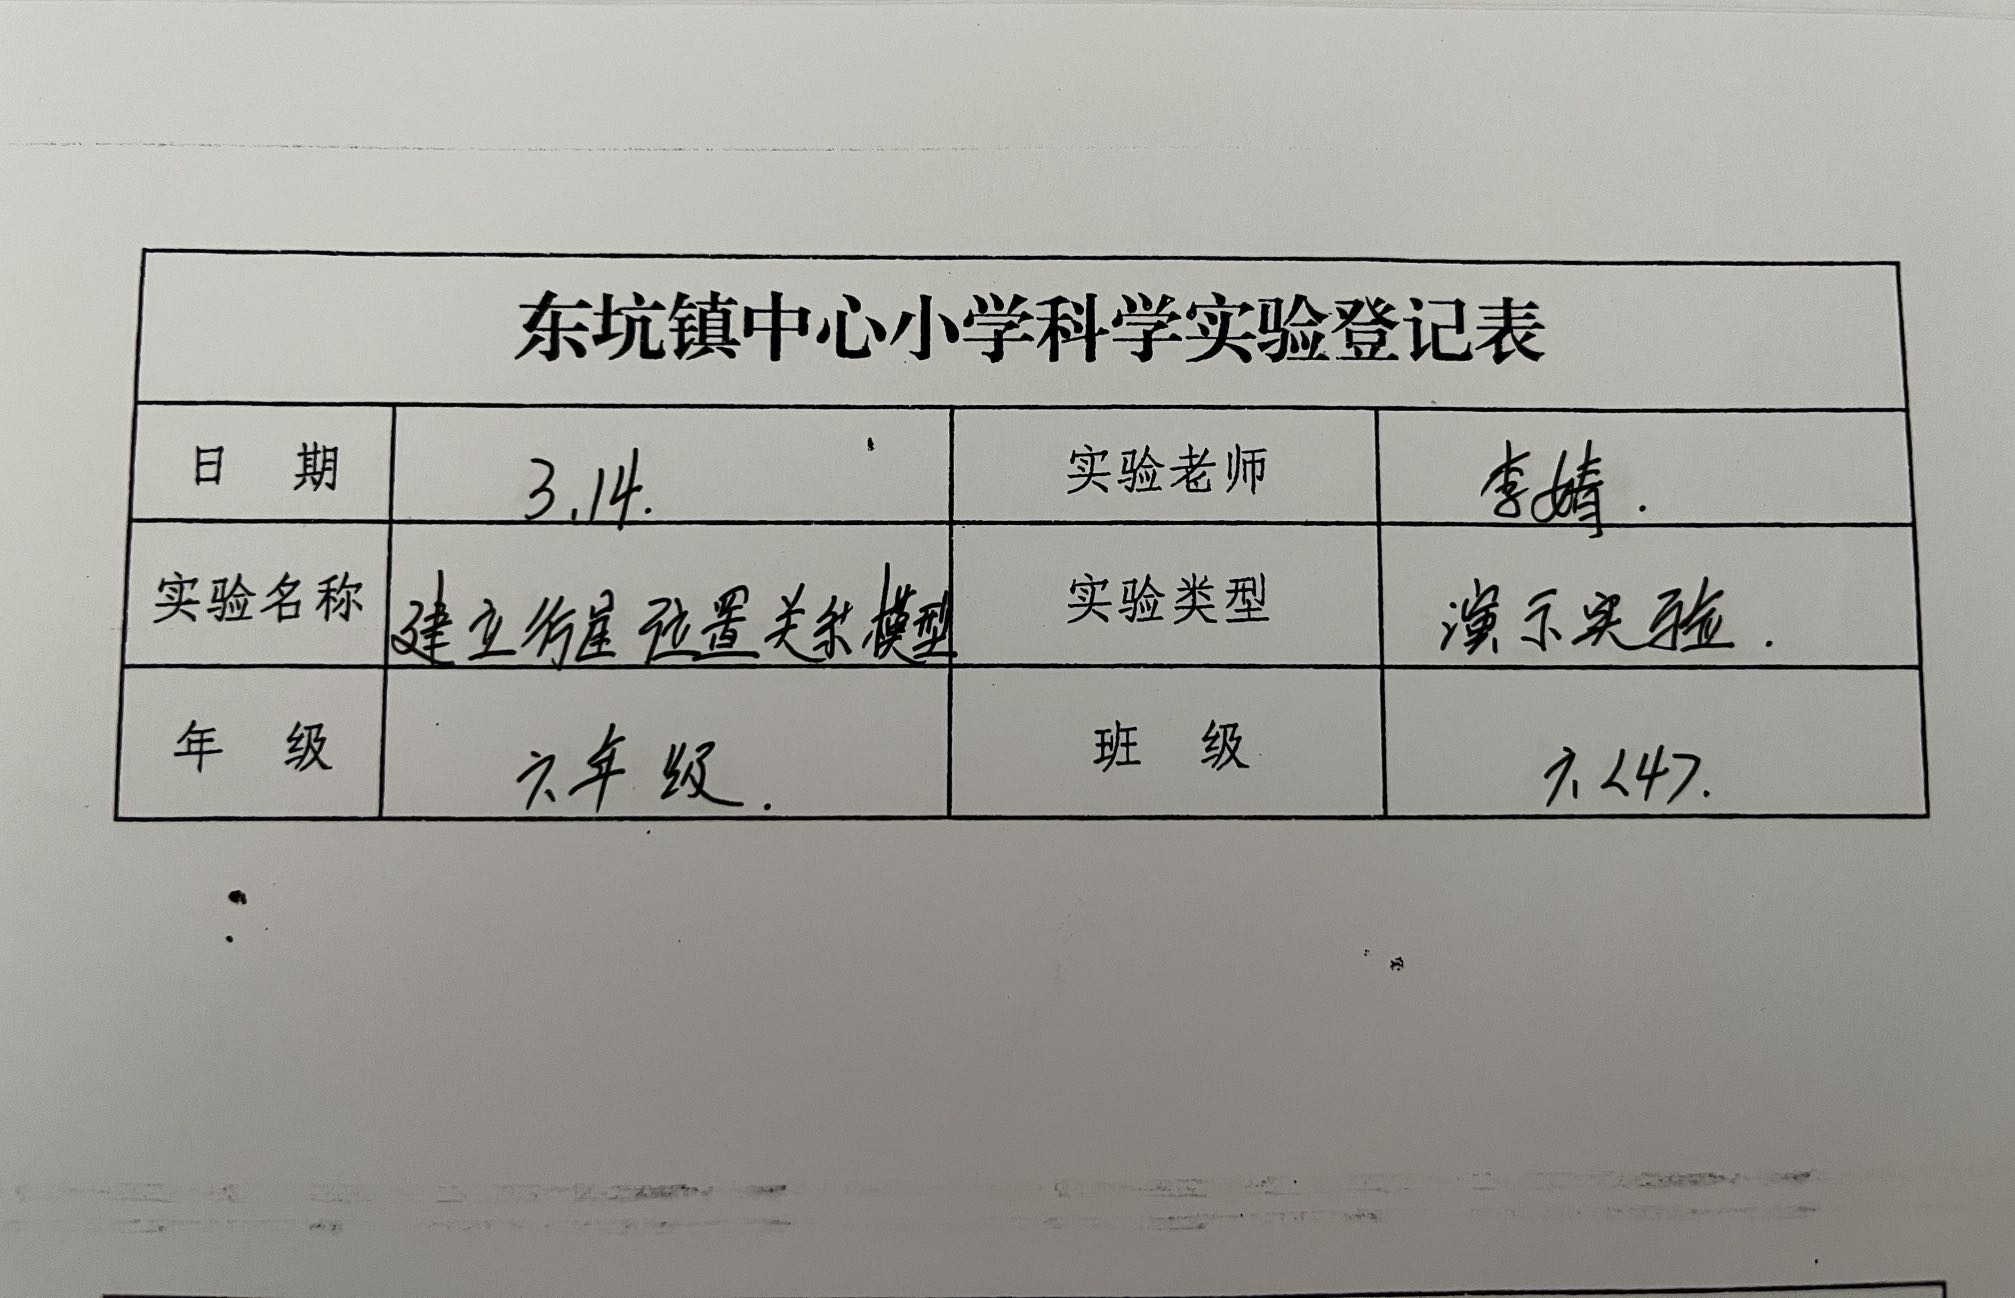 东坑镇中心小学科学实验登记表
日 期 3.14. 实验老师 李婧.
实验名称 建立行星位置关系模型 实验类型 演示实验.
年 级 六年级. 班 级 六<4>.